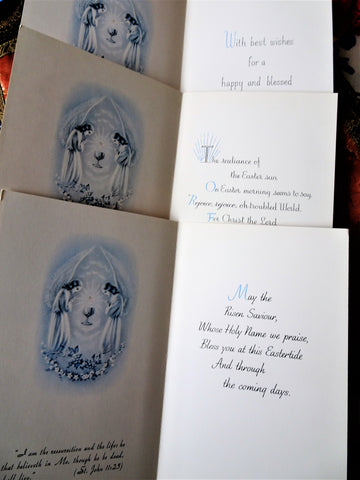 With best wishes
for a
happy and blessed
The radiance of
the Easter sun
On Easter morning seems to say,
Rejoice, rejoice, oh troubled World,
For Christ the Lord
May the
Risen Saviour,
Whose Holy Name we praise,
Bless you at this Eastertide
And through
the coming days.
"I am the resurrection and the life: he
that believeth in Me, though he be dead,
shall live."
(St. John 11:25)